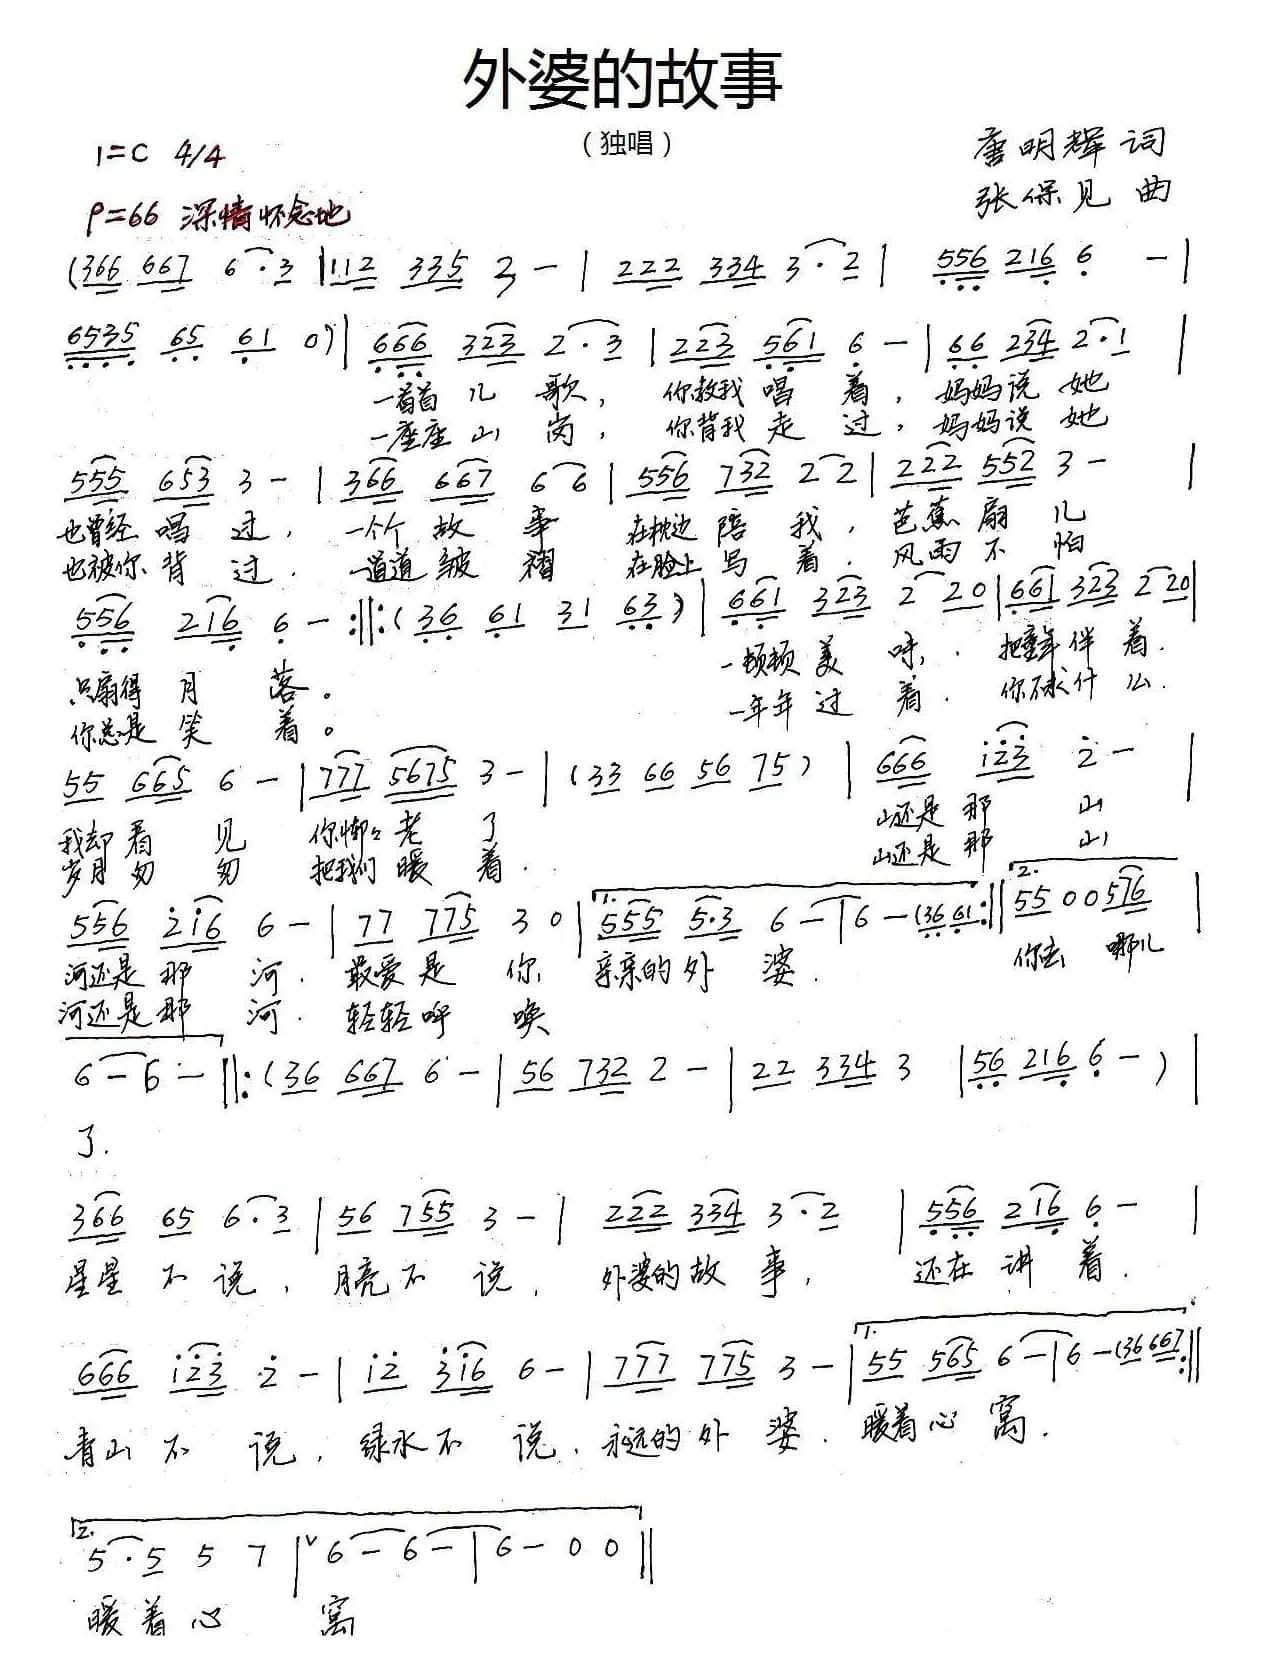 外婆的故事
(独唱)
1=C 4/4
唐明辉 词
♩=66 深情怀念地
张保见 曲
(366 667 6·3 | 112 335 2 - | 222 334 3·2 | 556 216 6 - |
6535 65 61 0) | 666 323 2·3 | 223 561 6 - | 66 234 2·1 |
一首首儿歌, 你教我唱着, 妈妈说她
一座座山岗, 你背我走过, 妈妈说她
555 653 3 - | 366 667 66 | 556 732 22 | 222 552 3 -|
也曾经唱过, 一个个故事 在枕边陪我, 芭蕉扇儿
也被你背过. 一道道皱褶 在脸上写着. 风雨不怕
556 216 6 - :||: (36 61 31 63) | 661 323 2 20 | 661 323 2 20|
只扇得月落。 一顿顿美味, 把童年伴着.
你总是笑着。 一年年过着. 你不求什么.
55 665 6 - | 777 5675 3 - | (33 66 56 75) | 666 123 2 - |
我却看见 你慢慢老了 山还是那山
岁月匆匆 把我们暖着. 山还是那山
556 216 6 - | 77 775 3 0 | 1. 555 5·3 6 - | 6 - (36 61 :|| 2. 55 0 0 576 |
河还是那河. 最爱是你, 亲亲的外婆. 你去哪儿
河还是那河. 轻轻呼唤
6 - 6 - ||: (36 667 6 - | 56 732 2 - | 22 334 3 | 56 216 6 - ) |
了.
366 65 6·3 | 56 755 3 - | 222 334 3·2 | 556 216 6 - |
星星不说, 月亮不说, 外婆的故事, 还在讲着.
666 123 2 - | 12 316 6 - | 777 775 3 - | 1. 55 565 6 - | 6 - (36 667 :||
青山不说, 绿水不说, 永远的外婆. 暖着心窝.
2. 5·5 5 7 | ∨ 6 - 6 - | 6 - 0 0 ||
暖着心窝